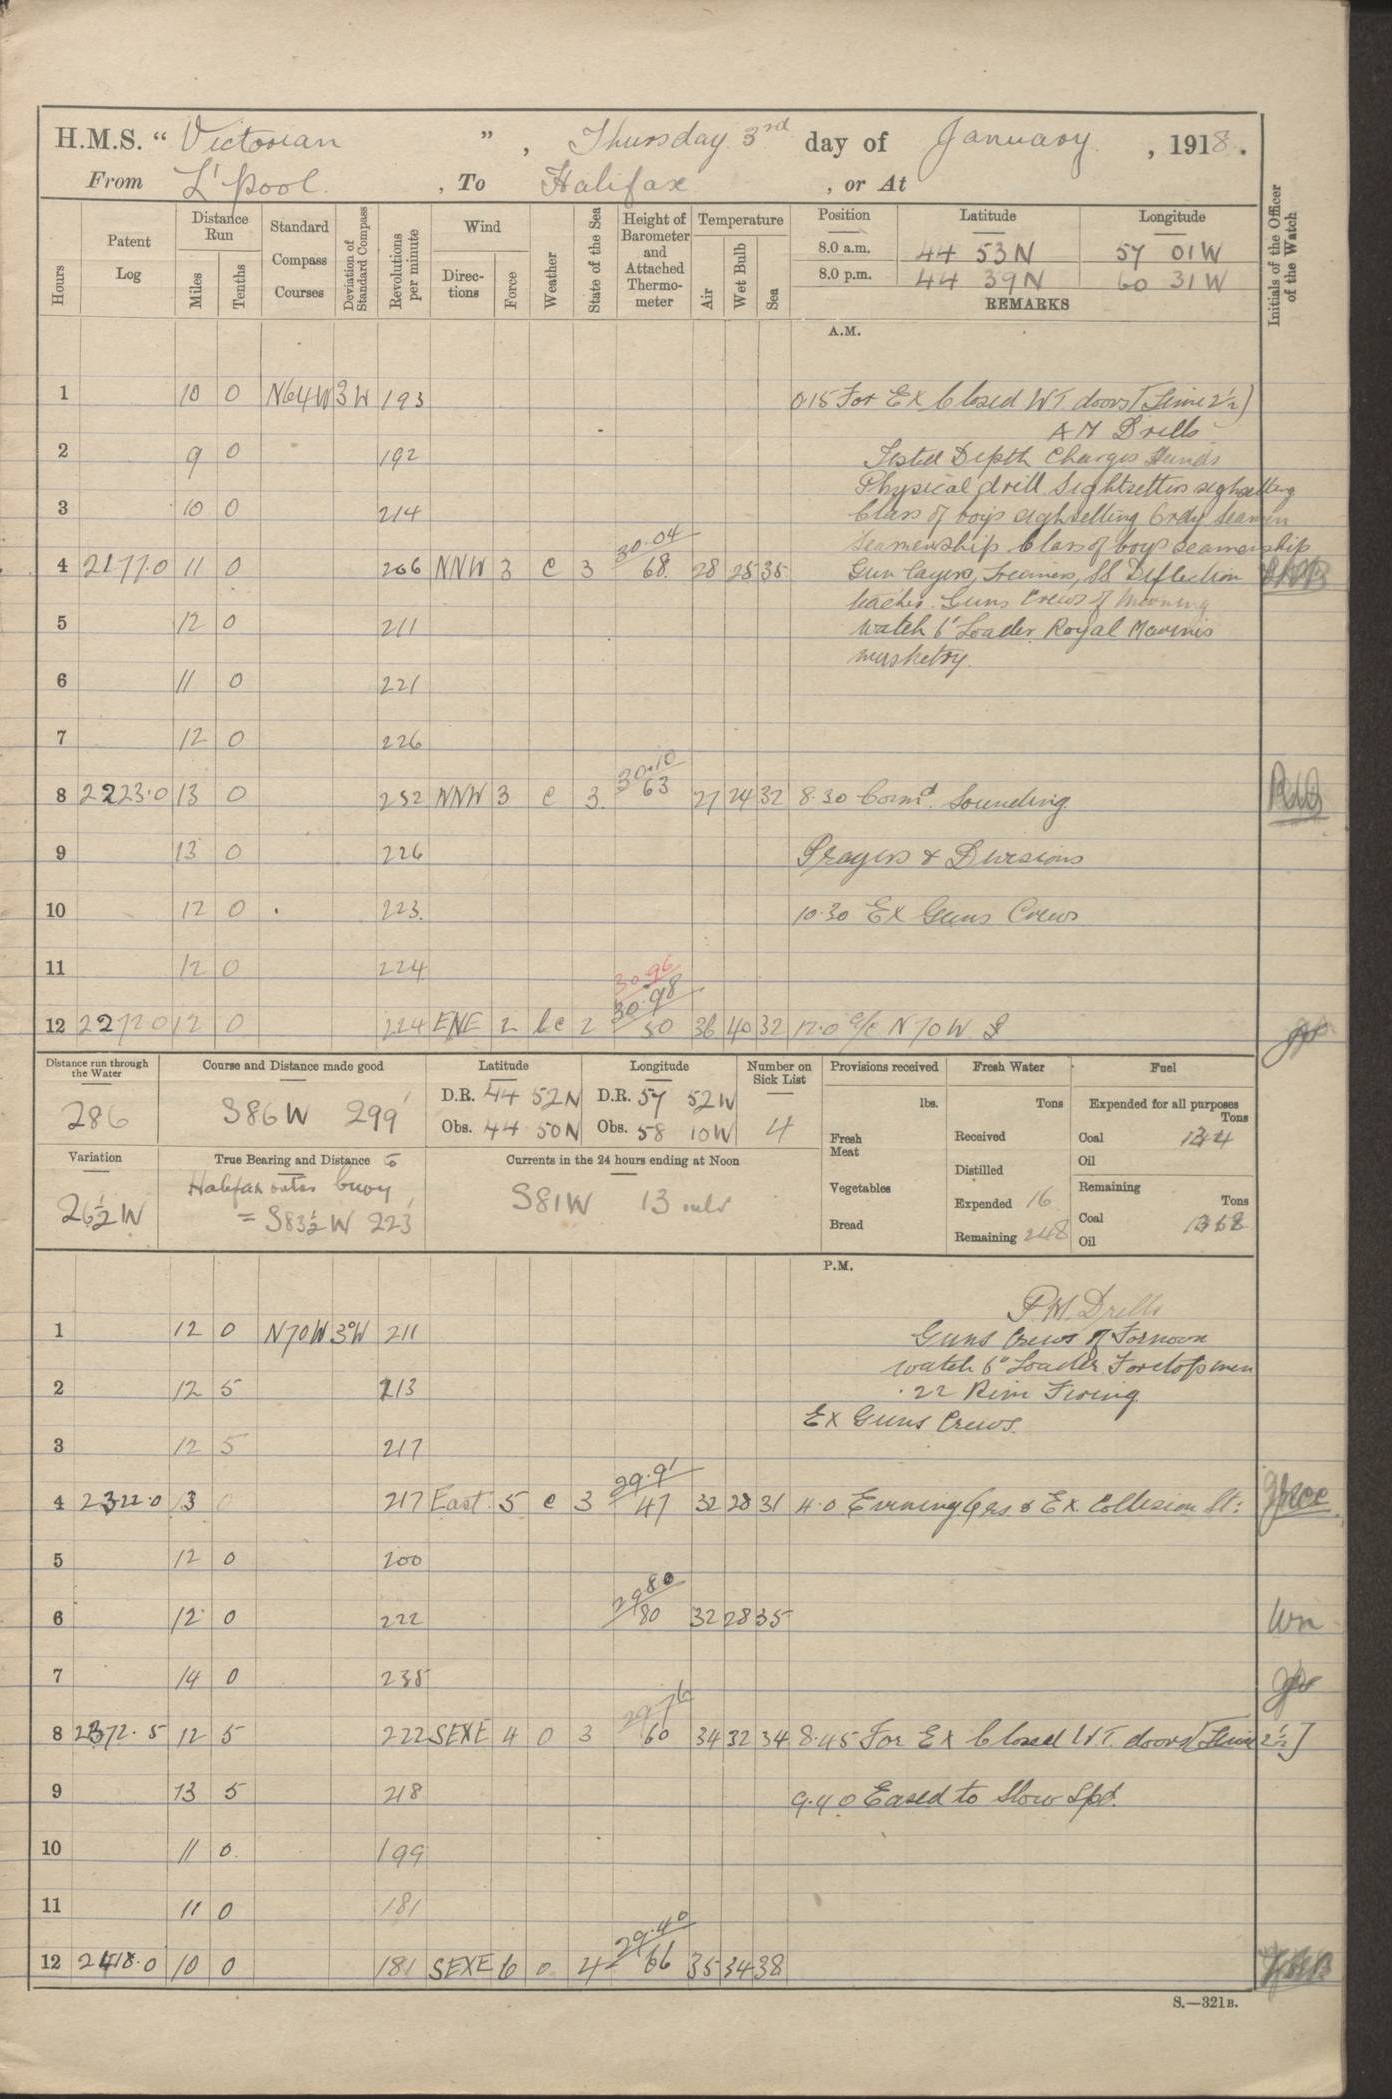 H.M.S. “ Victorian ” , Thursday 3rd day of January , 1918.
From L'pool , To Halifax , or At
Hours
Patent Log
Distance Run
Miles
Tenths
Standard Compass Courses
Deviation of Standard Compass
Revolutions per minute
Wind
Directions
Force
Weather
State of the Sea
Height of Barometer and Attached Thermometer
Temperature
Air
Wet Bulb
Sea
Position Latitude Longitude
8.0 a.m. 44 53 N 57 01 W
8.0 p.m. 44 39 N 60 31 W
REMARKS
Initials of the Officer of the Watch
A.M.
1 10 0 N64W 3W 193 0.15 For Ex Closed WT doors [Time 2½]
AM Drills
2 9 0 192 Tested Depth Charges Hands
Physical drill Sightsetters sightsetting
3 10 0 214 Class of boys sightsetting Ordy Seamen
Seamenship Class of boys seamenship
4 2177.0 11 0 206 NNW 3 c 3 30.04 68 28 25 35 Gun layers, Trainers, SS Deflection
teacher. Guns Crews of Morning
5 12 0 211 watch 6" Loader Royal Marines
musketry.
6 11 0 221
7 12 0 226
8 2223.0 13 0 252 NNW 3 c 3 30.10 63 27 24 32 8.30 Comd. Sounding.
9 13 0 226 Prayers & Divisions
10 12 0 223 10.30 Ex Guns Crews
11 12 0 224
30.96
12 2272 0 12 0 224 ENE 2 bc 2 30.98 50 36 40 32 12.0 a/c N70W
Distance run through the Water
286
Course and Distance made good
S86W 299'
Latitude
D.R. 44 52N
Obs. 44 50N
Longitude
D.R. 57 52W
Obs. 58 10W
Number on Sick List
4
Variation
26½W
True Bearing and Distance to
Halifax outer buoy
= S83½W 223'
Currents in the 24 hours ending at Noon
S81W 13 mls
Provisions received
lbs.
Fresh Meat
Vegetables
Bread
Fresh Water
Tons
Received
Distilled
Expended 16
Remaining 248
Fuel
Expended for all purposes
Tons
Coal 134
Oil
Remaining
Tons
Coal 1368
Oil
P.M.
P.M. Drills
1 12 0 N70W 3°W 211 Guns Crews of Fornoon
watch 6" Loader Foretopmen
2 12 5 213 .22 Rim Firing
Ex Guns Crews.
3 12 5 217
4 2322.0 13 0 217 East 5 c 3 29.91 47 32 28 31 4.0 Evening Qrs & Ex Collision St:
5 12 0 200
6 12 0 222 29.80 80 32 28 35 Wn
7 14 0 235
8 2372.5 12 5 222 SEXE 4 0 3 29.76 60 34 32 34 8.45 For Ex Closed W.T. doors [Time 2½]
9 13 5 218 9.40 Eased to Slow Spd.
10 11 0 199
11 11 0 181
12 2418.0 10 0 181 SEXE 6 0 4 29.40 66 35 34 38
S.—321B.